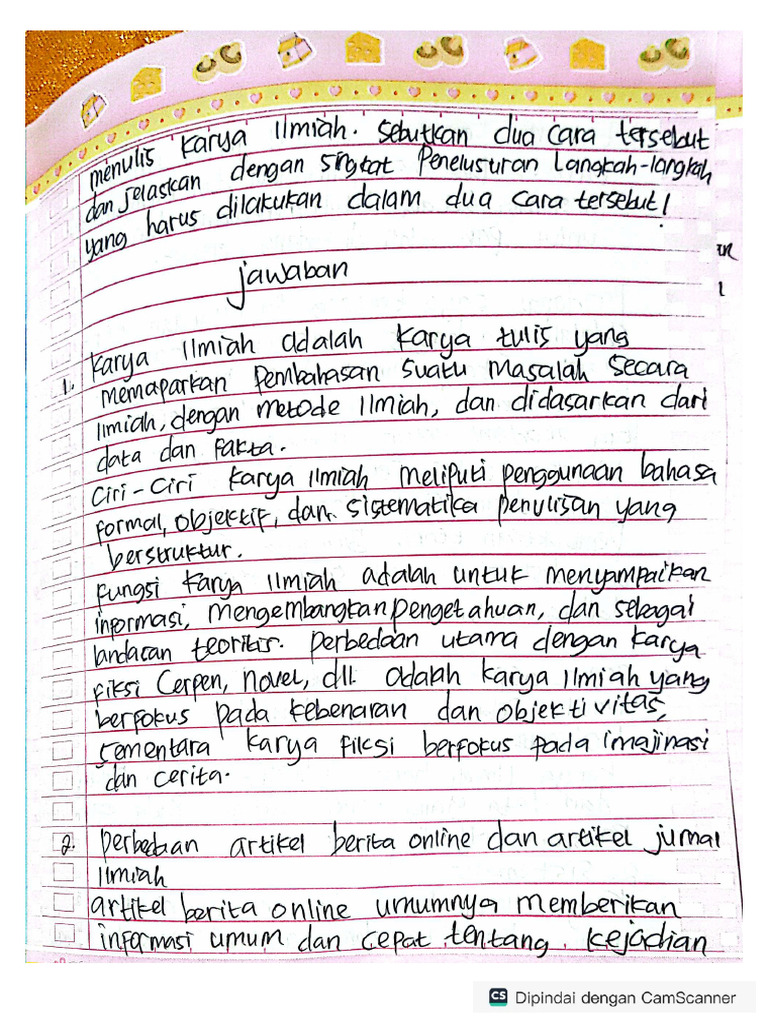 menulis karya Ilmiah. Sebutkan dua cara tersebut
dan jelaskan dengan singkat Penelusuran Langkah-langkah
yang harus dilakukan dalam dua cara tersebut!
jawaban
1. Karya Ilmiah adalah karya tulis yang
memaparkan Pembahasan suatu masalah secara
Ilmiah, dengan metode Ilmiah, dan didasarkan dari
data dan fakta.
Ciri-Ciri karya Ilmiah meliputi penggunaan bahasa
formal, objektif, dan sistematika penulisan yang
berstruktur.
Fungsi karya Ilmiah adalah untuk menyampaikan
informasi, mengembangkan pengetahuan, dan sebagai
landasan teoritis. perbedaan utama dengan karya
fiksi Cerpen, novel, dll. adalah karya Ilmiah yang
berfokus pada kebenaran dan objektivitas,
sementara karya fiksi berfokus pada imajinasi
dan cerita.
2. perbedaan artikel berita online dan artikel jurnal
Ilmiah
artikel berita online umumnya memberikan
informasi umum dan cepat tentang kejadian
CS Dipindai dengan CamScanner